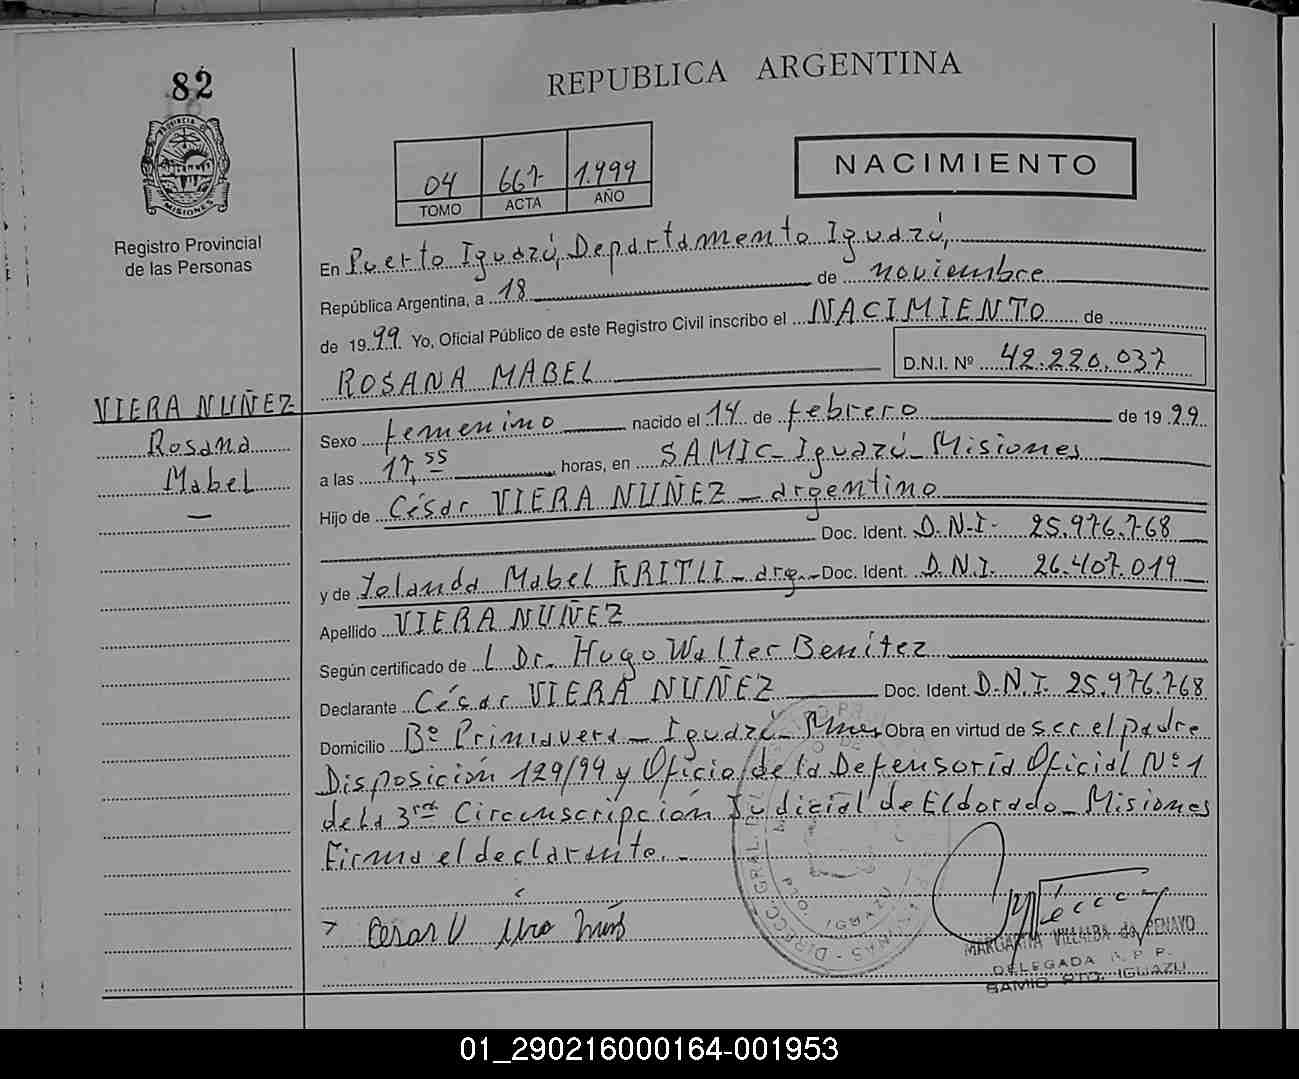 82
REPUBLICA ARGENTINA
NACIMIENTO
04 667 1.999
TOMO ACTA AÑO
PROVINCIA DE MISIONES
Registro Provincial
de las Personas
En Puerto Iguazú, Departamento Iguazú,
República Argentina, a 18 de noviembre
de 1999 Yo, Oficial Público de este Registro Civil inscribo el NACIMIENTO de
ROSANA MABEL D.N.I. Nº 42.220.037
VIERA NUÑEZ
Rosana
Mabel
Sexo femenino nacido el 14 de febrero de 1999
a las 17,55 horas, en SAMIC - Iguazú - Misiones
Hijo de César VIERA NUÑEZ - argentino
Doc. Ident. D.N.I. 25.976.768
y de Yolanda Mabel KRITLI - arg. - Doc. Ident. D.N.I. 26.407.019
Apellido VIERA NUÑEZ
Según certificado de l Dr. Hugo Walter Benítez
Declarante César VIERA NUÑEZ Doc. Ident. D.N.I. 25.976.768
Domicilio Bº Primavera - Iguazú - Mnes Obra en virtud de ser el padre
Disposición 129/99 y Oficio de la Defensoría Oficial Nº 1
de la 3ra Circunscripción Judicial de Eldorado - Misiones
Firma el declarante. -
Cesar V
MARGARITA VILLALBA de PENAYO
DELEGADA R. P. P.
SAMIC PTO. IGUAZU
01_290216000164-001953